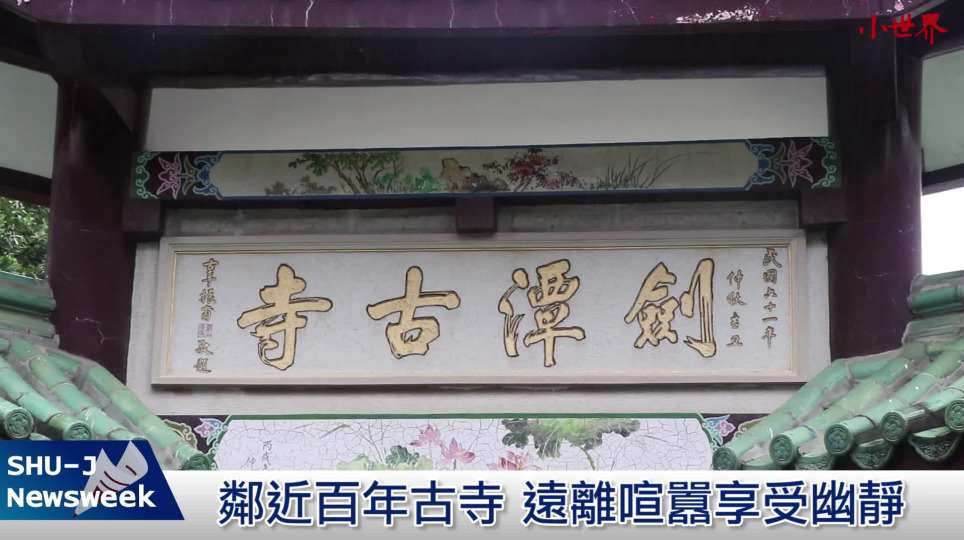 小世界
民國六十一年
仲秋吉旦
劍潭古寺
辜振甫敬題
SHU-J
Newsweek
鄰近百年古寺 遠離喧囂享受幽靜